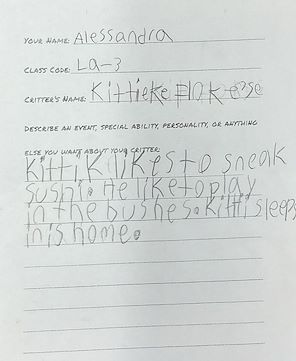 YOUR NAME: Alessandra
CLASS CODE: La-3
CRITTER'S NAME: Kittieke
DESCRIBE AN EVENT, SPECIAL ABILITY, PERSONALITY, OR ANYTHING
ELSE YOU WANT ABOUT YOUR CRITTER:
Kitti Kilikes to sneak
sushi. He like to play
in the bushes. Kitti sleeps
in is home.